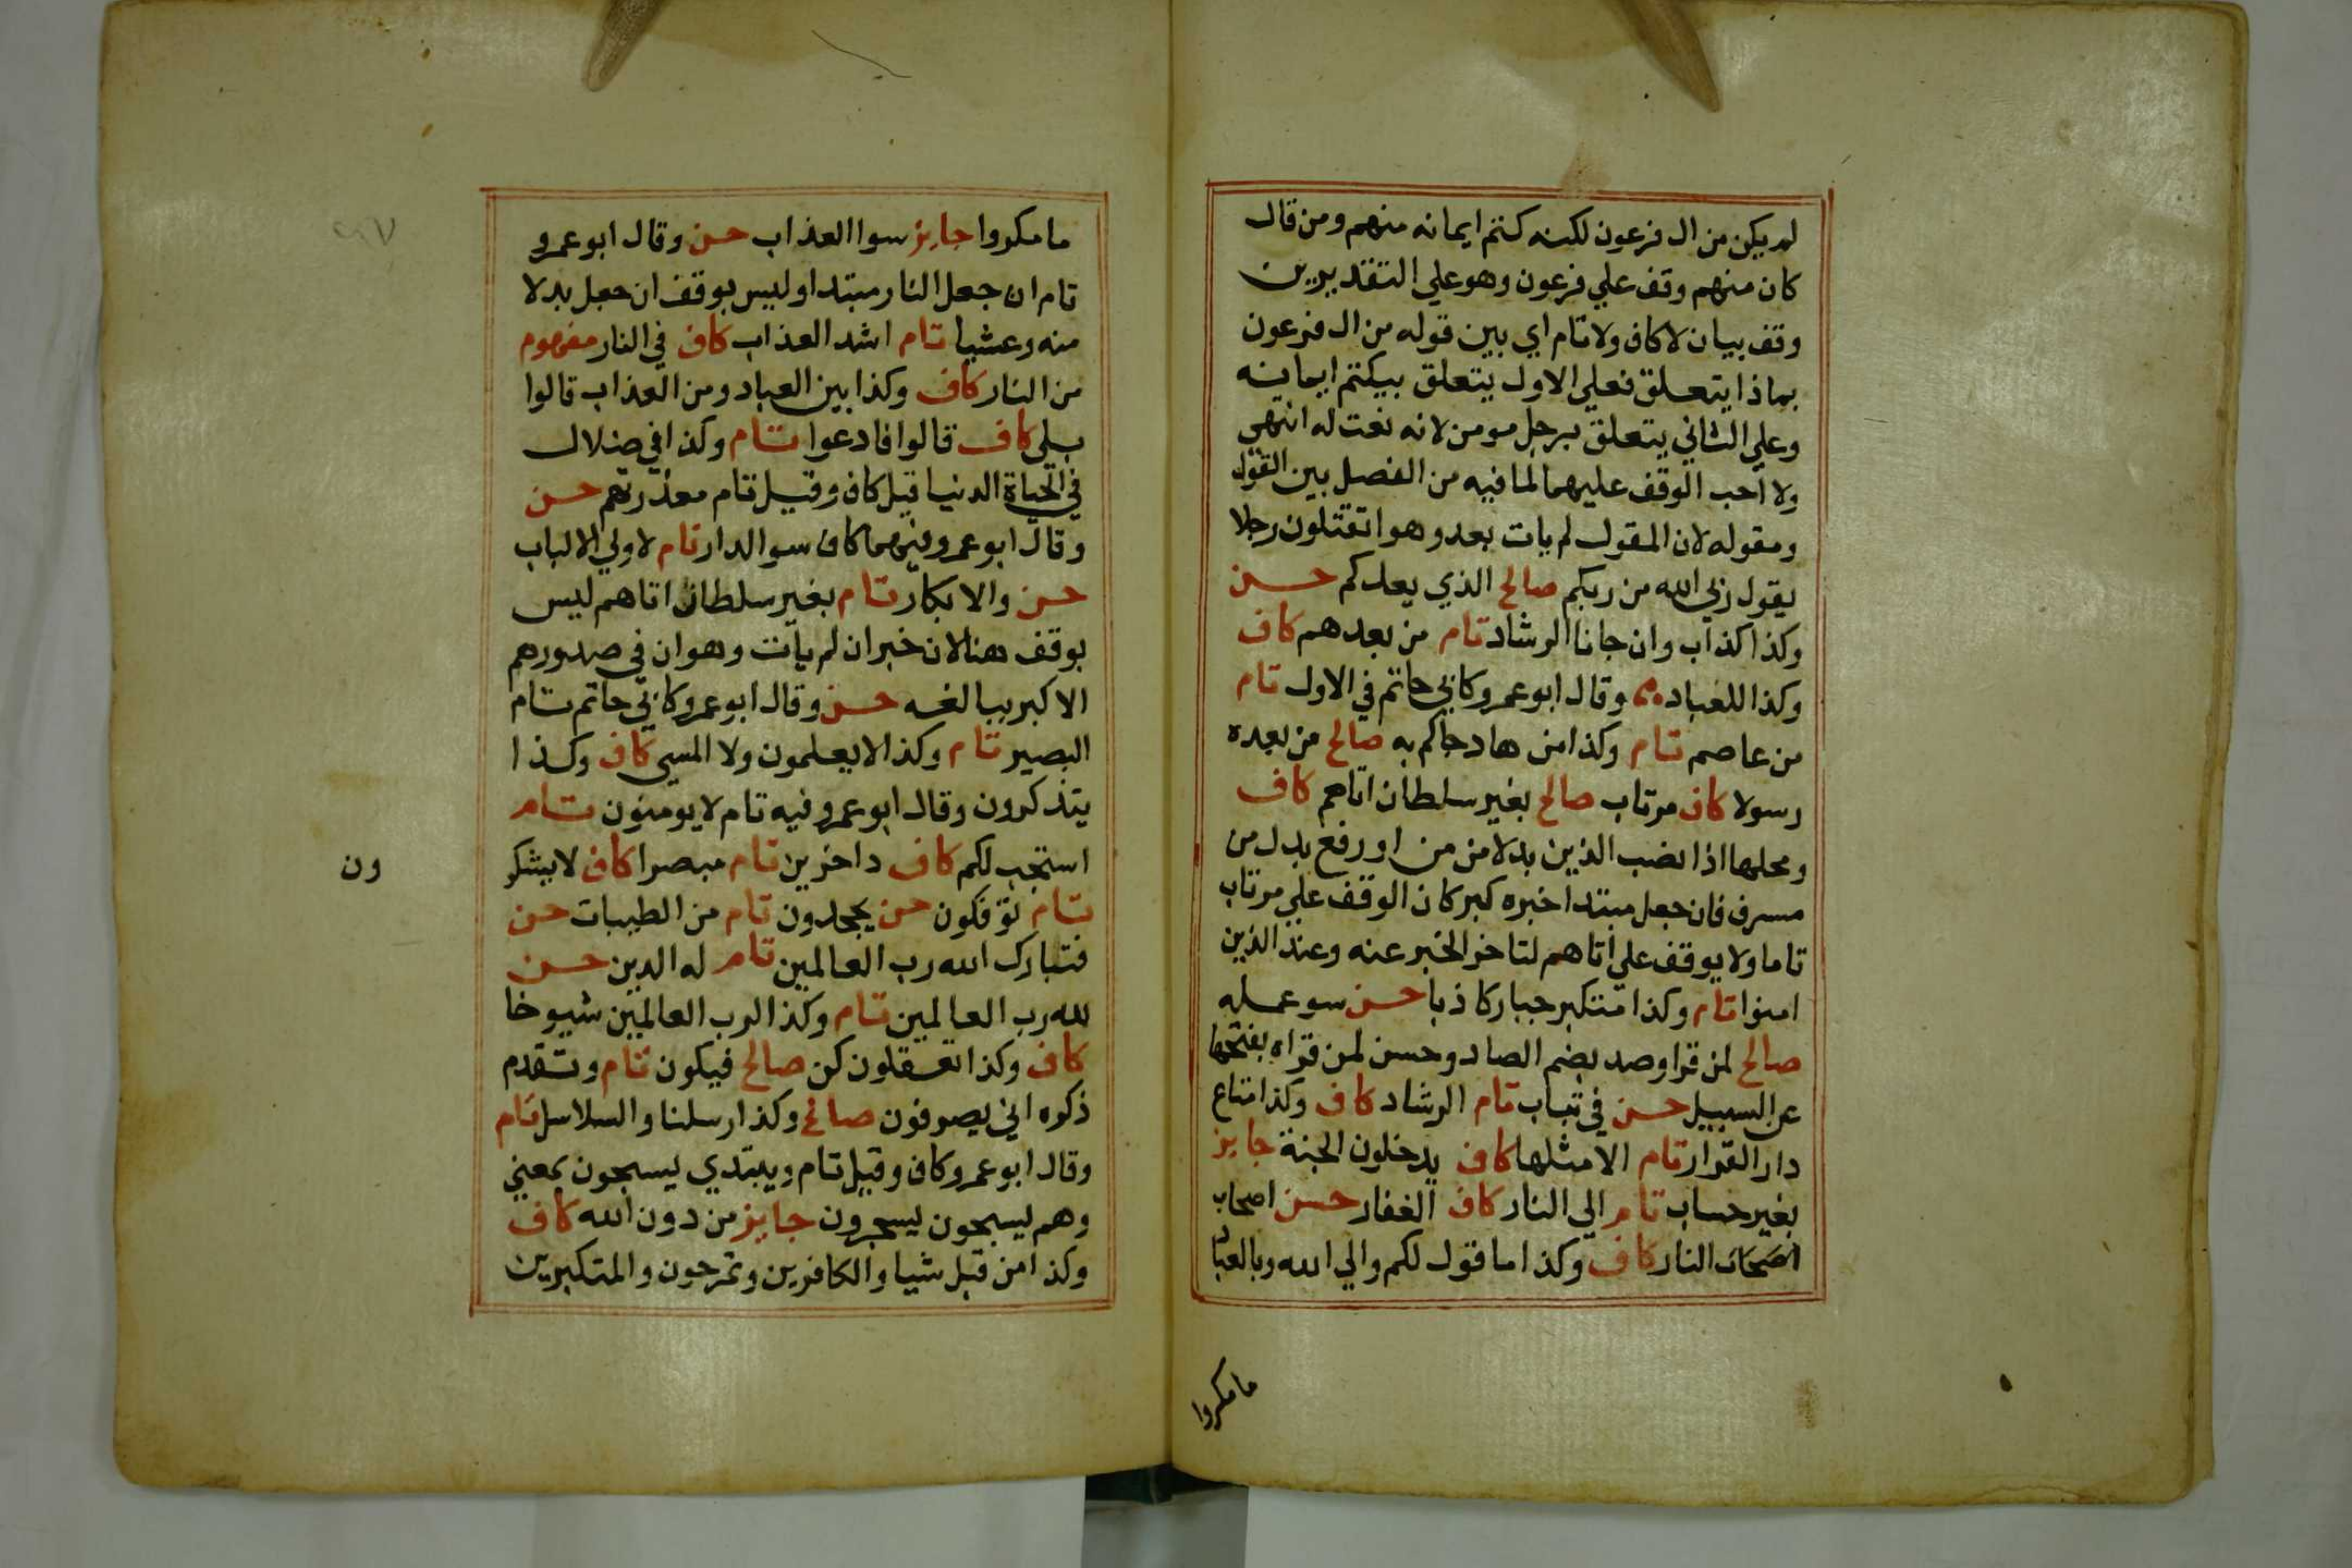 لم يكن من ال فرعون لكنه كتم ايمانه منهم ومن قال
كان منهم وقف علي فرعون وهو علي التقديرين
وقف بيان لا كاف ولا تام اي بين قوله من ال فرعون
بماذا يتعلق فعلي الاول يتعلق بيكتم ايمانه
وعلي الثاني يتعلق برجل مومن لانه نعت له انتهي
ولا احب الوقف عليهما لما فيه من الفصل بين القول
ومقوله لان المقول لم يات بعد وهو اتقتلون رجلا
يقول ربي الله من ربكم صالح الذي يعدكم حسن
وكذا كذاب وان جانا الرشاد تام من بعدهم كاف
وكذا للعباد وقال ابو عمرو كابي حاتم في الاول تام
من عاصم تام وكذا من هاد جاكم به صالح من بعده
رسولا كاف مرتاب صالح بغير سلطان اتاهم كاف
ومحلها اذا نصب الذين بدلا من من او رفع بدل من
مسرف فان جعل مبتدا خبره كبر كان الوقف علي مرتاب
تاما ولا يوقف علي اتاهم لتاخر الخبر عنه وعند الذين
امنوا تام وكذا متكبر جبار كاذبا حسن سو عمله
صالح لمن قرا وصد بضم الصاد وحسن لمن قراه بفتحها
عن السبيل حسن في تباب تام الرشاد كاف وكذا متاع
دار القرار تام الا مثلها كاف يدخلون الجنة جايز
بغير حساب تام الي النار كاف الغفار حسن اصحاب
اصحاب النار كاف وكذا ما قول لكم والي الله وبالعباد
ما مكروا
ما مكروا جايز سوا العذاب حسن وقال ابو عمرو
تام ان جعل النار مبتدا وليس بوقف ان جعل بدلا
منه وعشيا تام اشد العذاب كاف في النار مفهوم
من النار كاف وكذا بين العباد ومن العذاب قالوا
بلي كاف قالوا فادعوا تام وكذا في ضلال
في الحياة الدنيا قيل كاف وقيل تام معذرتهم حسن
وقال ابو عمرو فيهما كاف سو الدار تام لاولي الالباب
حسن والابكار تام بغير سلطان اتاهم ليس
بوقف هنا لان خبر ان لم يات وهو ان في صدورهم
الا كبر ببالغيه حسن وقال ابو عمرو كابي حاتم تام
البصير تام وكذا لا يعلمون ولا المسي كاف وكذا
يتذكرون وقال ابو عمرو فيه تام لا يومنون تام
استجب لكم كاف داخرين تام مبصرا كاف لا يشكر
ون
تام توفكون حسن يجحدون تام من الطيبات حسن
فتبارك الله رب العالمين تام له الدين حسن
لله رب العالمين تام وكذا لرب العالمين شيوخا
كاف وكذا تعقلون كن صالح فيكون تام وتقدم
ذكره اني يصرفون صالح وكذا رسلنا والسلاسل تام
وقال ابو عمرو كاف وقيل تام ويبتدي يسحبون بمعني
وهم يسحبون يسجرون جايز من دون الله كاف
وكذا من قبل شيا والكافرين وتمرحون والمتكبرين